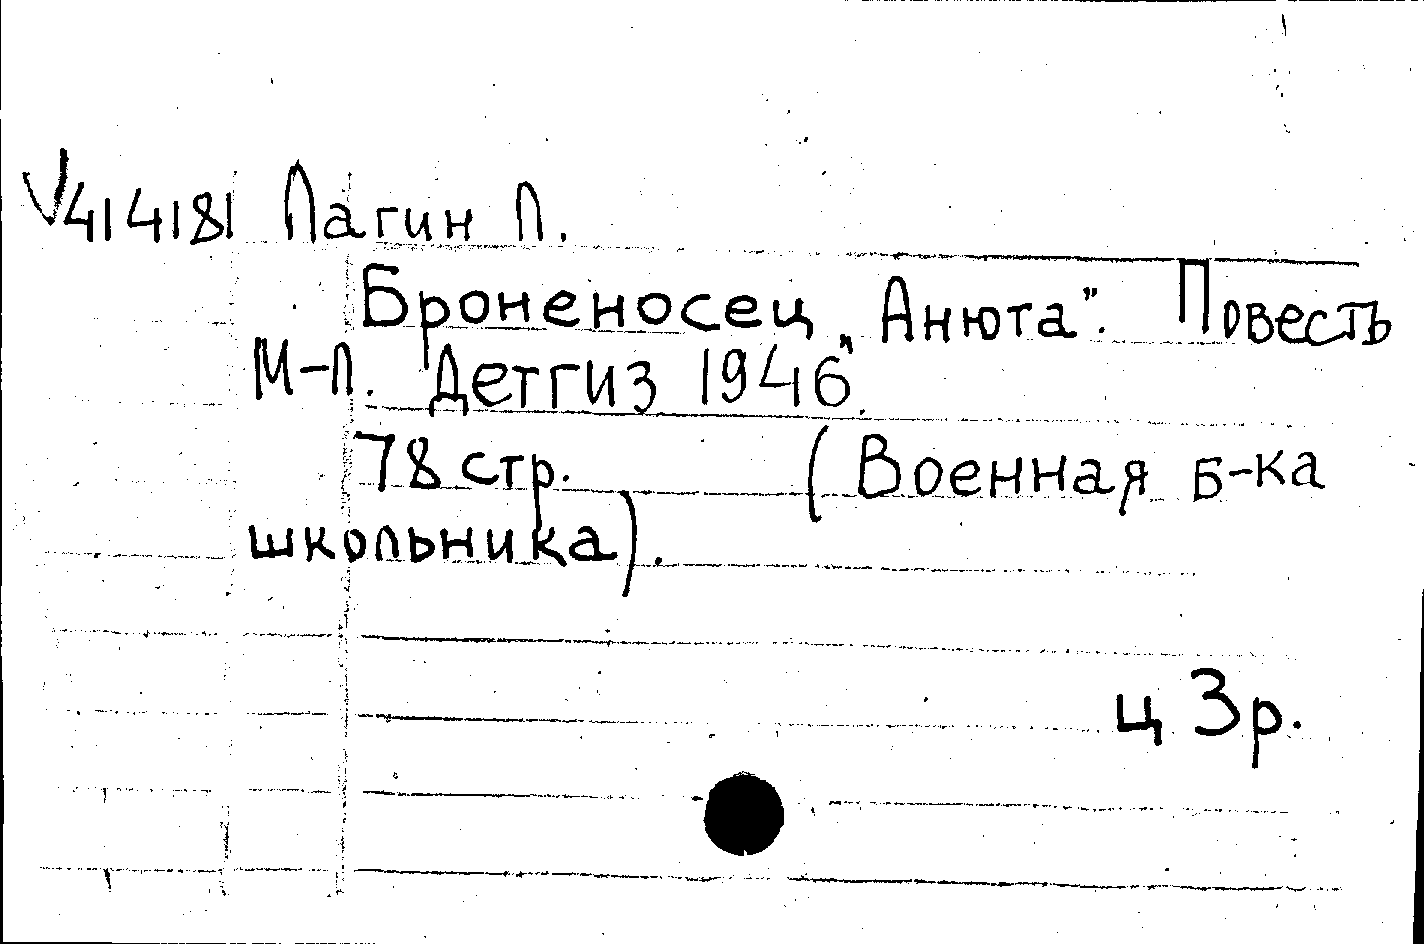 V414181 Лагин Л.
Броненосец „Анюта“. Повесть
М-Л. Детгиз 1946.
78 стр. (Военная б-ка
школьника).
ц 3р.